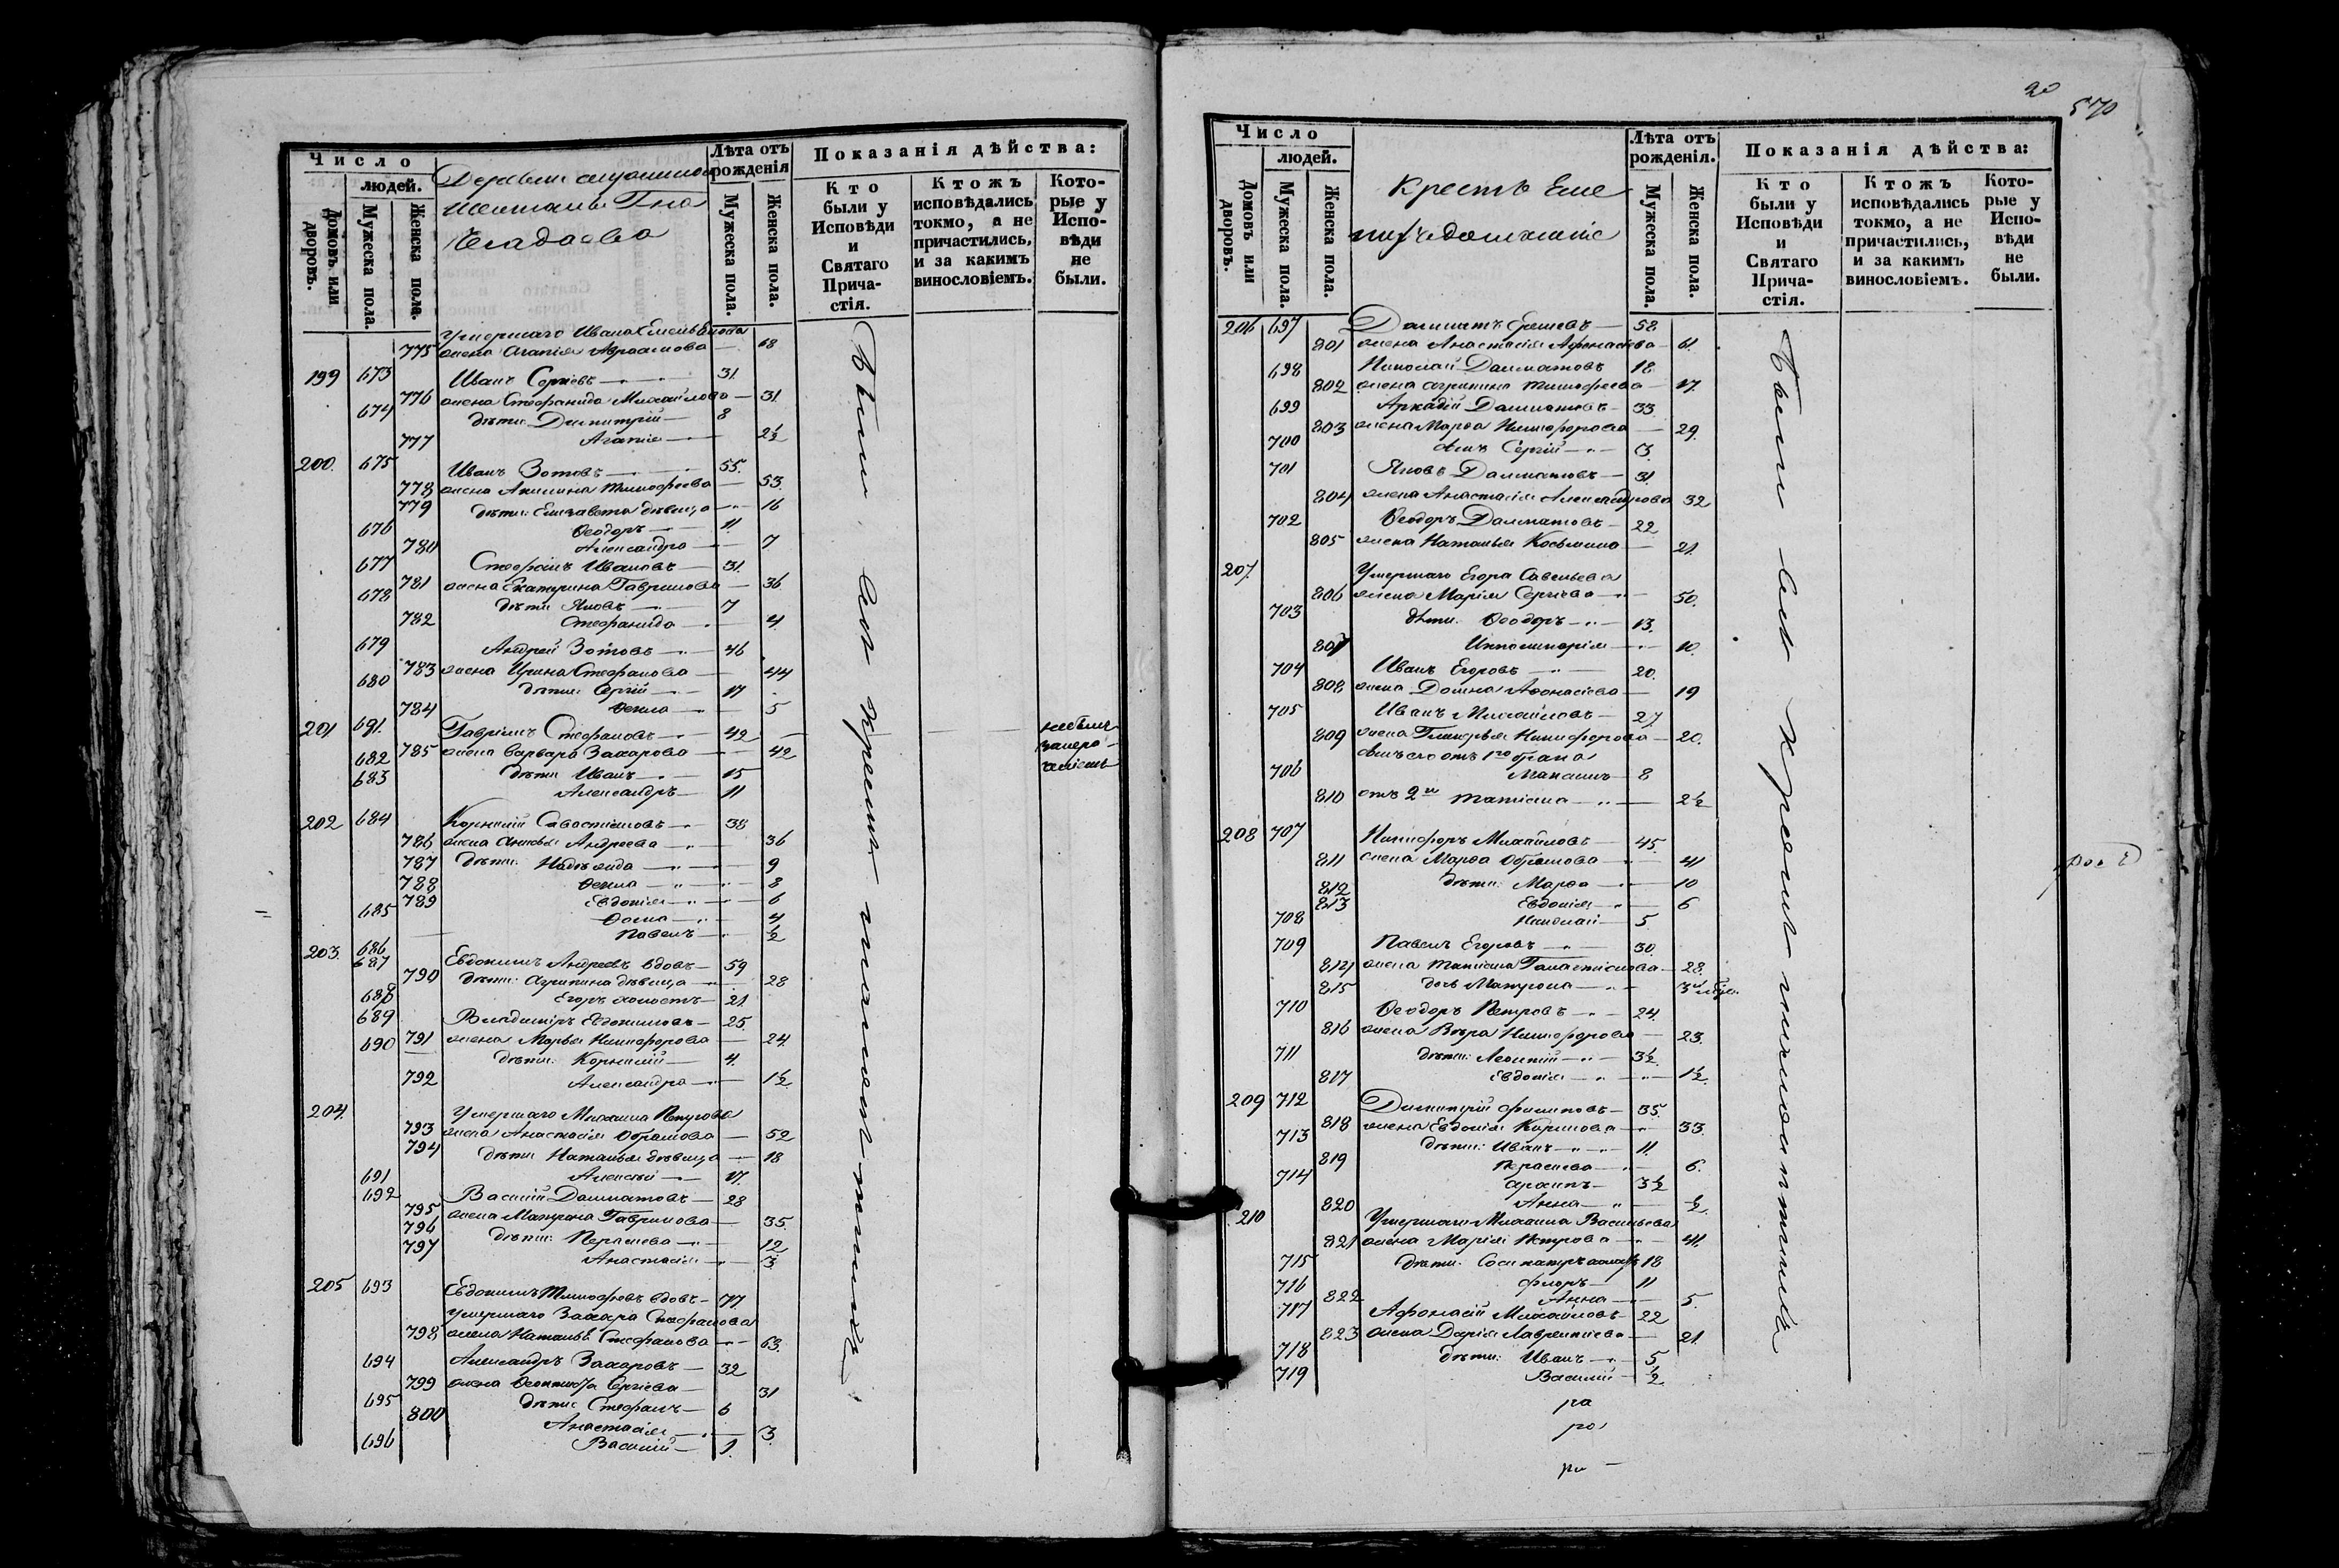 Число
людей.
Домовъ или дворовъ.
Мужеска пола.
Женска пола.
Деревни
Лѣта отъ рожденія
Мужеска пола.
Женска пола.
Показанія дѣйства:
Кто были у Исповѣди и Святаго Прича-стія.
Ктожъ исповѣдались токмо, а не причастились, и за какимъ винословіемъ.
Кото-рые у Испо-вѣди не были.
Умершаго Ивана
775 жена Агапія Авраамова — 68
199 673 Иванъ Сергіевъ — 31.
776 жена Стефанида Михайлова — 31.
674 дѣти: Димитрій — 8
777 Агапія — 2½
200. 675 Иванъ Зотовъ — 55.
778 жена Акилина Тимофеева — 53.
779 дѣти: Елисавета дѣвица — 16
676 Ѳеодоръ — 11.
780 Александра — 7
677 Стефанъ Ивановъ — 31.
781 жена Екатерина Гаврилова — 36.
678 дѣти Яковъ — 7
782 Стефанида — 4.
679 Андрей Зотовъ — 46
783 жена Ирина Стефанова — 44
680 дѣти: Сергій — 17
784 Ѳекла — 5
201 691. Гавріилъ Стефановъ — 42
785 жена Варвара Захарова — 42
682 дѣти Иванъ — 15
683 Александръ — 11
202 684 Корнилій Савостіановъ — 38
786 жена Андреева — 36
787 дѣти: Надежда — 9
788 Ѳекла — 8
789 Евдокія — 6
685 Ѳома — 4
Павелъ — ½
203. 686
687 Евдокимъ Андреевъ вдовъ — 59
790 дѣти: Агрипина дѣвица — 28
688 Егоръ холостъ — 21.
689 Владиміръ Евдокимовъ — 25.
791 жена Марья Никифорова — 24.
690 дѣти: Корнилій — 4.
792 Александра — 1½
204. Умершаго Михаила Петрова
793 жена Анастасія Абрамова — 52
794 дѣти Наталья дѣвица — 18
691 Алексѣй — 17.
692 Василій Далматовъ — 28
795 жена Матрона Гаврилова — 35.
796 дѣти: Параскева — 12
797 Анастасія — 3.
205 693 Евдокимъ Тимофѣевъ вдовъ — 77.
Умершаго Захара Стефанова
798 жена Наталья Стефанова — 63.
694 Александръ Захаровъ — 32
799 жена Сергіева — 31
695 дѣти: Стефанъ — 6
800 Анастасія — 3.
696 Василій — 1.
Были вси кромѣ малолѣтнихъ
20
570
Число
людей.
Домовъ или дворовъ.
Мужеска пола.
Женска пола.
Лѣта отъ рожденія.
Мужеска пола.
Женска пола.
Показанія дѣйства:
Кто были у Исповѣди и Святаго Прича-стія.
Ктожъ исповѣдались токмо, а не причастились, и за какимъ винословіемъ.
Кото-рые у Испо-вѣди не были.
206 697 Далматъ — 58
801 жена Анастасія — 61.
698 Николай Далматовъ 18
802 жена Агрипина Тимофеева — 17.
699 Аркадій Далматовъ — 33
803 жена Марѳа Никифорова — 29.
700 сынъ Сергій — 3.
701 Яковъ Далматовъ — 31
804 жена Анастасія Александрова 32
702 Ѳеодоръ Далматовъ — 22
805 жена Наталья Косьмина — 21.
207. Умершаго Егора Савельева
806 жена Марія Сергіева — 50.
703 дѣти: Ѳеодоръ — 13.
807 — 10.
704 Иванъ Егоровъ — 20.
808 жена Домна Аѳонасіева — 19
705 Иванъ Михайловъ — 27
809 жена Гликерья Никифорова — 20.
сынъ его отъ 1го брака
706 — 8
810 отъ 2го Татіана — 2½
208 707 Никифоръ Михайловъ — 45.
811 жена Марѳа Абрамова — 41
812 дѣти: Марѳа — 10
813 Евдокія — 6
708 Николай — 5
709 Павелъ Егоровъ — 30.
814 жена Татіана — 28.
815 дочь Матрона —
710 Ѳеодоръ Петровъ — 24.
816 жена Вѣра Никифорова — 23.
711 дѣти: Леонтій — 3½
817 Евдокія — 1½.
209 712 Димитрій Филиповъ — 35.
818 жена Евдокія Кирилова — 33.
713 дѣти: Иванъ — 11.
819 Параскева — 6.
714 — 3½
820 Анна — ½.
210 Умершаго Михаила Васильева
821 жена Марія Петрова — 41.
715 дѣти: Сосипатръ холостъ 18
716 Флоръ — 11
822 Анна — 5.
717 Афонасій Михайловъ — 22
823 жена Дарія Лаврентіева — 21.
718 дѣти: Иванъ — 5
719 Василій — ½
Были вси кромѣ малолѣтнихъ